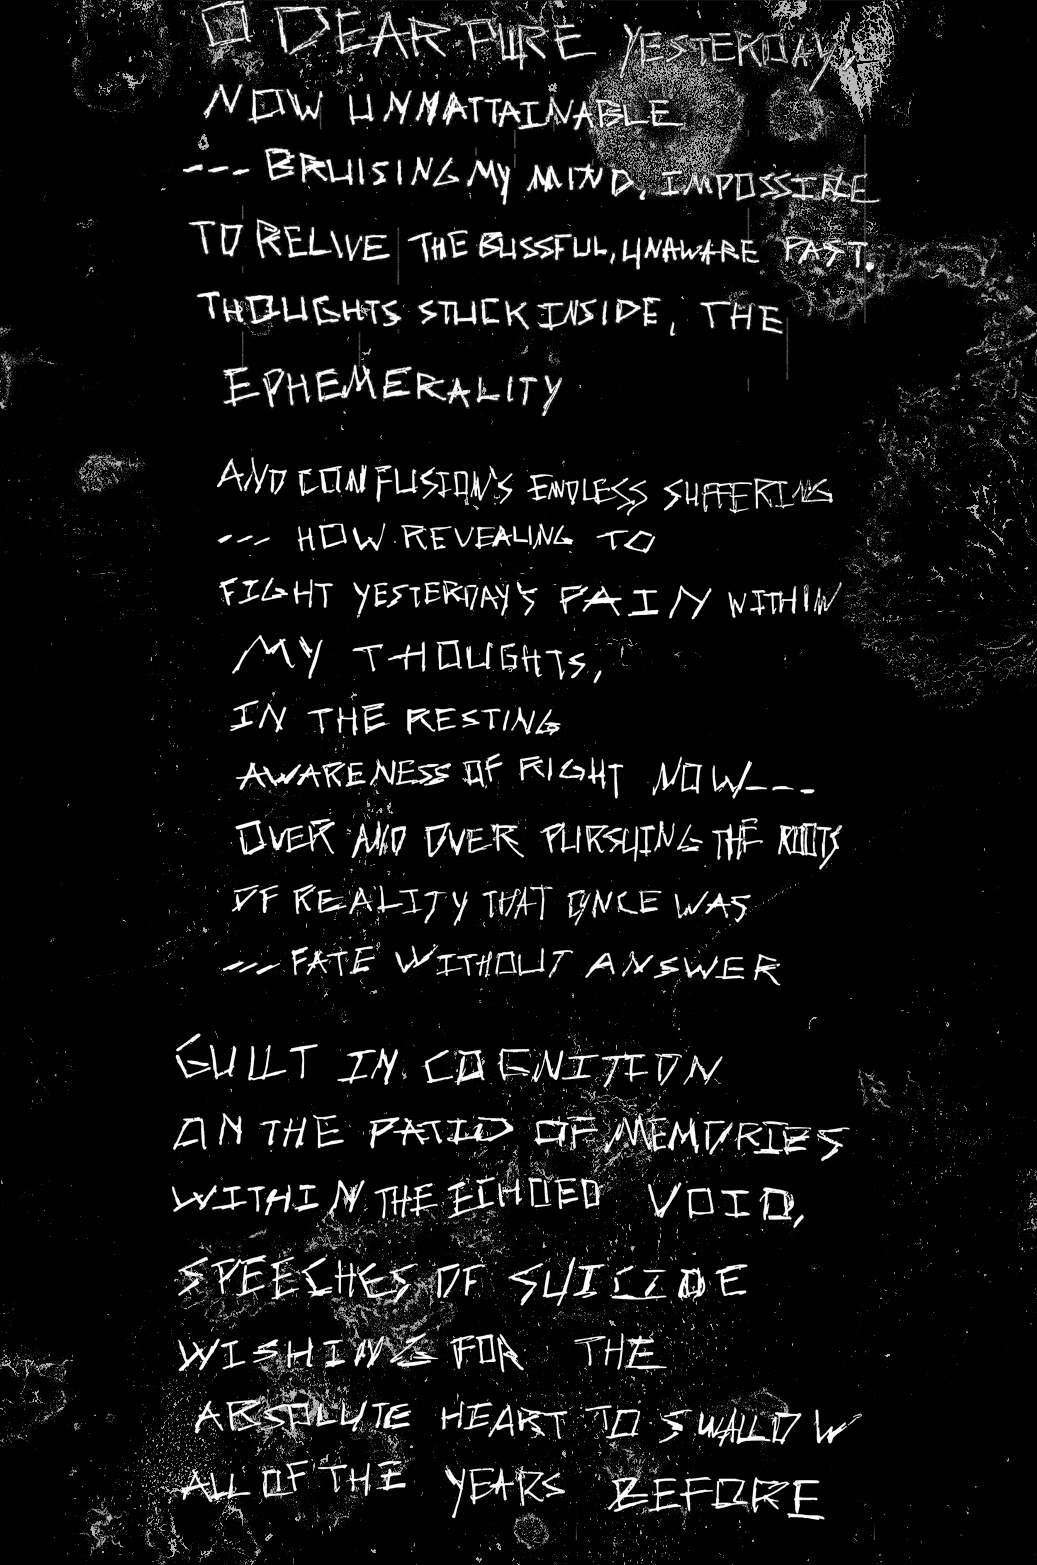 O DEAR PURE YESTERDAY,
NOW UNNATTAINABLE
--- BRUISING MY MIND, IMPOSSIBLE
TO RELIVE THE BLISSFUL, UNAWARE PAST.
THOUGHTS STUCK INSIDE, THE
EPHEMERALITY
AND CONFUSION'S ENDLESS SUFFERING
--- HOW REVEALING TO
FIGHT YESTERDAY'S PAIN WITHIN
MY THOUGHTS,
IN THE RESTING
AWARENESS OF RIGHT NOW---
OVER AND OVER PURSUING THE ROOTS
OF REALITY THAT ONCE WAS
--- FATE WITHOUT ANSWER
GUILT IN COGNITION
ON THE PATIO OF MEMORIES
WITHIN THE ECHOED VOID,
SPEECHES OF SUICIDE
WISHING FOR THE
ABSOLUTE HEART TO SWALLOW
ALL OF THE YEARS BEFORE